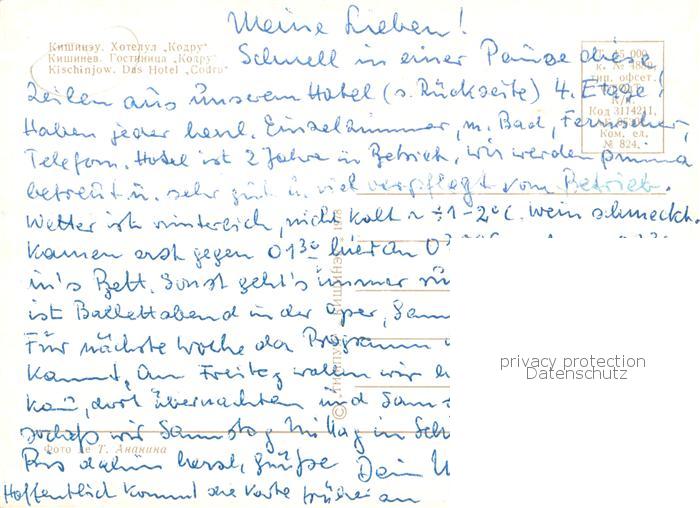 Meine Lieben!
Кишинэу. Хотелул „Кодру"
Кишинев. Гостиница „Кодру"
Kischinjow. Das Hotel „Codru"
Schnell in einer Pause diese
Zeilen aus unserem Hotel (s. Rückseite) 4. Etage!
Haben jeder herrl. Einzelzimmer, m. Bad, Fernseher,
Telefon. Hotel ist 2 Jahre in Betrieb, wir werden prima
betreut u. sehr gut u. viel verpflegt vom Betrieb.
Wetter ist winterlich, nicht kalt ~ ÷1-2°C. Wein schmeckt.
Kamen erst gegen 01³⁰ hier an
in's Bett. Sonst geht's immer
ist Ballettabend in der Oper,
Für nächste Woche das Programm
kannt. Am Freitag wollen wir
dort übernachten und
sodaß wir Samstag Mittag in
Bis dahin herzl. Grüße Dein
Hoffentlich kommt die Karte früher an
Код 3114211,
Ком. ел.
№ 824.
Фото де Т. Ананина
©
privacy protection
Datenschutz